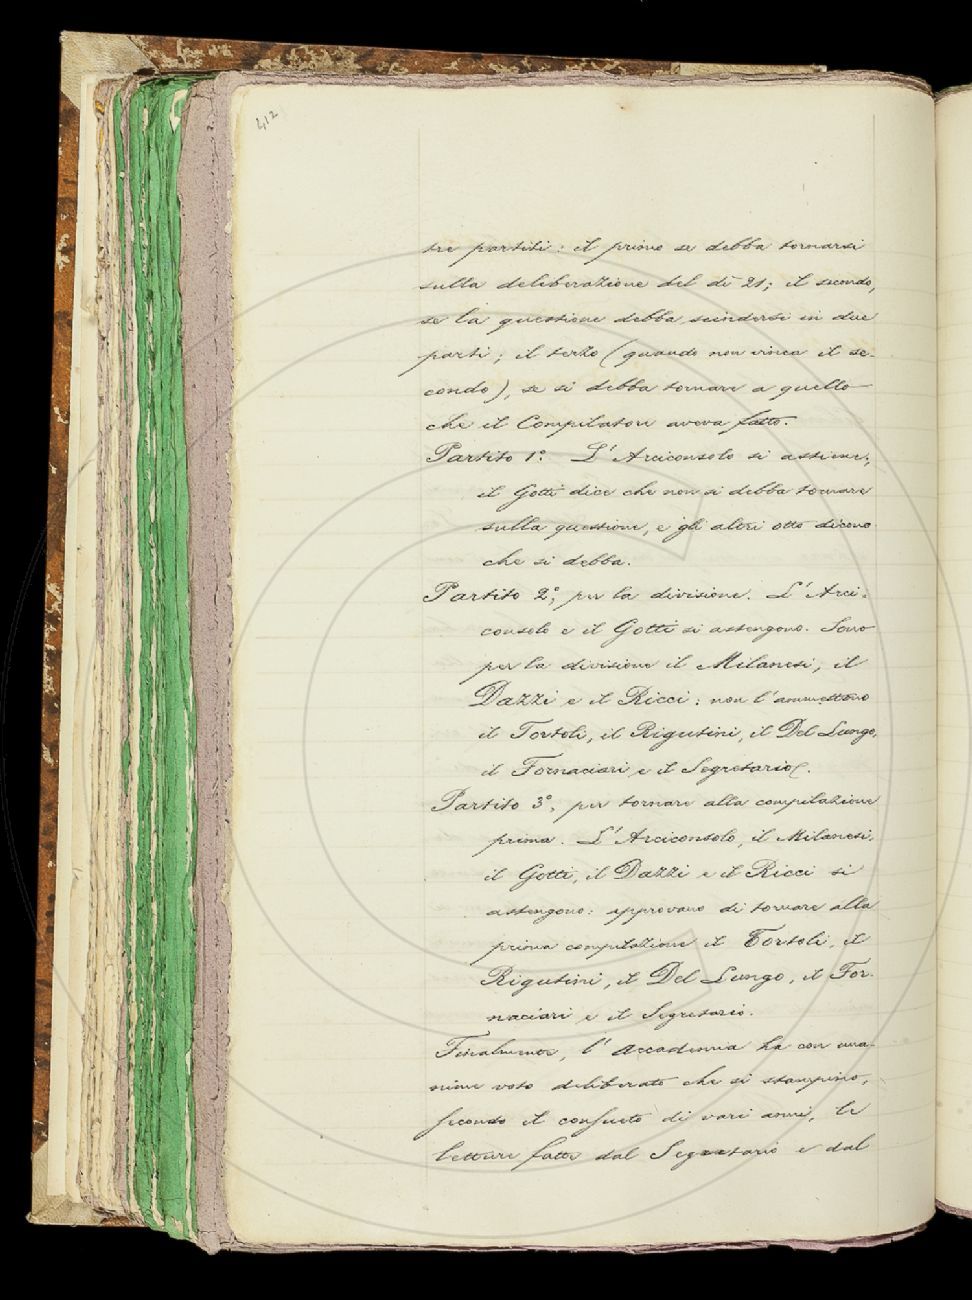 412
tre partiti: il primo se debba tornarsi
sulla deliberazione del dì 21; il secondo,
se la questione debba scindersi in due
parti; il terzo (quando non vinca il se-
condo), se si debba tornare a quello
che il Compilatore aveva fatto.
Partito 1.º L'Arciconsolo si astiene;
il Gotti dice che non si debba tornare
sulla questione, e gli altri otto dicono
che si debba.
Partito 2º, per la divisione. L'Arci-
consolo e il Gotti si astengono. Sono
per la divisione il Milanesi, il
Dazzi e il Ricci: non l'ammettono
il Tortoli, il Rigutini, il Del Lungo,
il Fornaciari e il Segretario.
Partito 3º, per tornare alla compilazione
prima. L'Arciconsolo, il Milanesi,
il Gotti, il Dazzi e il Ricci si
astengono: approvano di tornare alla
prima compilazione il Tortoli, il
Rigutini, il Del Lungo, il For-
naciari e il Segretario.
Finalmente, l'Accademia ha con una-
nime voto deliberato che si stampino,
secondo il consueto di vari anni, le
letture fatte dal Segretario e dal